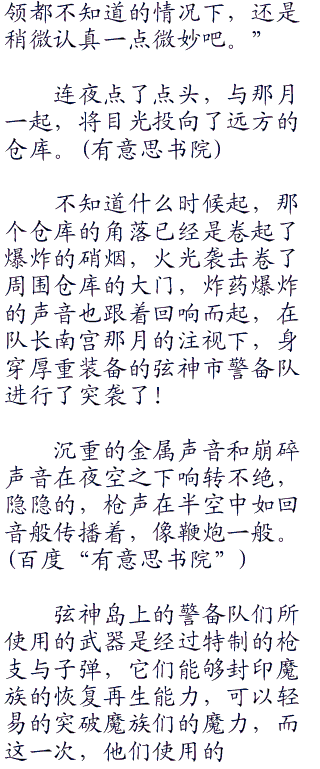 领都不知道的情况下，还是
稍微认真一点微妙吧。”
连夜点了点头，与那月
一起，将目光投向了远方的
仓库。(有意思书院)
不知道什么时候起，那
个仓库的角落已经是卷起了
爆炸的硝烟，火光袭击卷了
周围仓库的大门，炸药爆炸
的声音也跟着回响而起，在
队长南宫那月的注视下，身
穿厚重装备的弦神市警备队
进行了突袭了！
沉重的金属声音和崩碎
声音在夜空之下响转不绝，
隐隐的，枪声在半空中如回
音般传播着，像鞭炮一般。
(百度“有意思书院”)
弦神岛上的警备队们所
使用的武器是经过特制的枪
支与子弹，它们能够封印魔
族的恢复再生能力，可以轻
易的突破魔族们的魔力，而
这一次，他们使用的